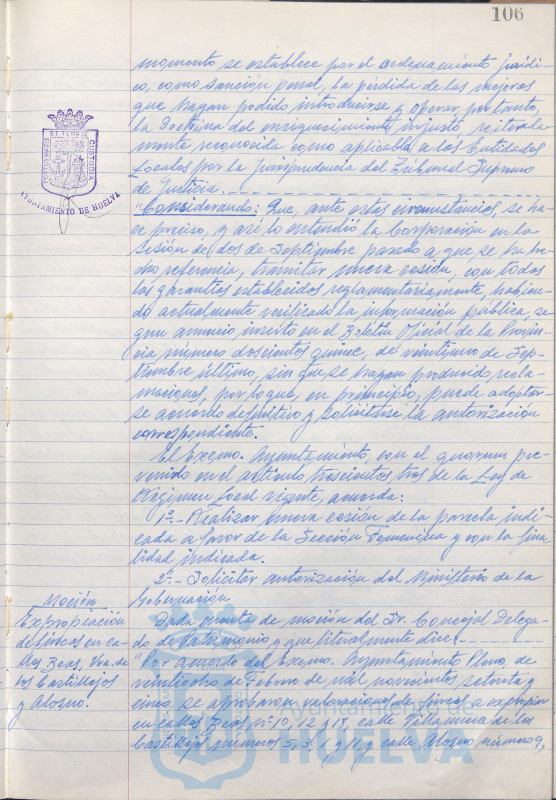 106
momento se establece por el ordenamiento jurídi-
co, como sanción penal, la pérdida de las mejoras
que hayan podido introducirse y operar, por tanto,
la Doctrina del enriquecimiento injusto, reiterada-
mente reconocida como aplicable a las Entidades
Locales por la Jurisprudencia del Tribunal Supremo
de Justicia.
"Considerando: Que, ante estas circunstancias, se ha-
ce preciso, y así lo entendió la Corporación en la
sesión de dos de Septiembre pasado a que se ha he-
cho referencia, tramitar nueva cesión, con todas
las garantías establecidas reglamentariamente, habien-
do actualmente verificado la información pública, se-
gún anuncio inserto en el Boletín Oficial de la Provin-
cia número doscientos quince, de veintiuno de Sep-
tiembre último, sin que se hayan producido recla-
maciones, por lo que, en principio, puede adoptar-
se acuerdo definitivo y solicitarse la autorización
correspondiente.
El Excmo. Ayuntamiento, con el quorum pre-
venido en el artículo trescientos tres de la Ley de
Régimen Local vigente, acuerda:
1º.- Realizar nueva cesión de la parcela indi-
cada a favor de la Sección Femenina y con la fina-
lidad indicada.
2º.- Solicitar autorización del Ministerio de la
Gobernación
Moción
Expropiación
de fincas en ca-
lles Beas, Vva. de
los Castillejos
y Alosno.
Dada cuenta de moción del Sr. Concejal Delega-
do de Patrimonio y que literalmente dice:
"Por acuerdo del Excmo. Ayuntamiento Pleno, de
veintiocho de Febrero de mil novecientos setenta y
cinco, se aprobaron valoraciones de fincas a expropiar
en calles Beas nº 10, 12 y 18, calle Villanueva de los
Castillejos números 5, 3, 1 y 11 y calle Alosno número 9,
AYUNTAMIENTO DE HUELVA
Ayuntamiento de
HUELVA